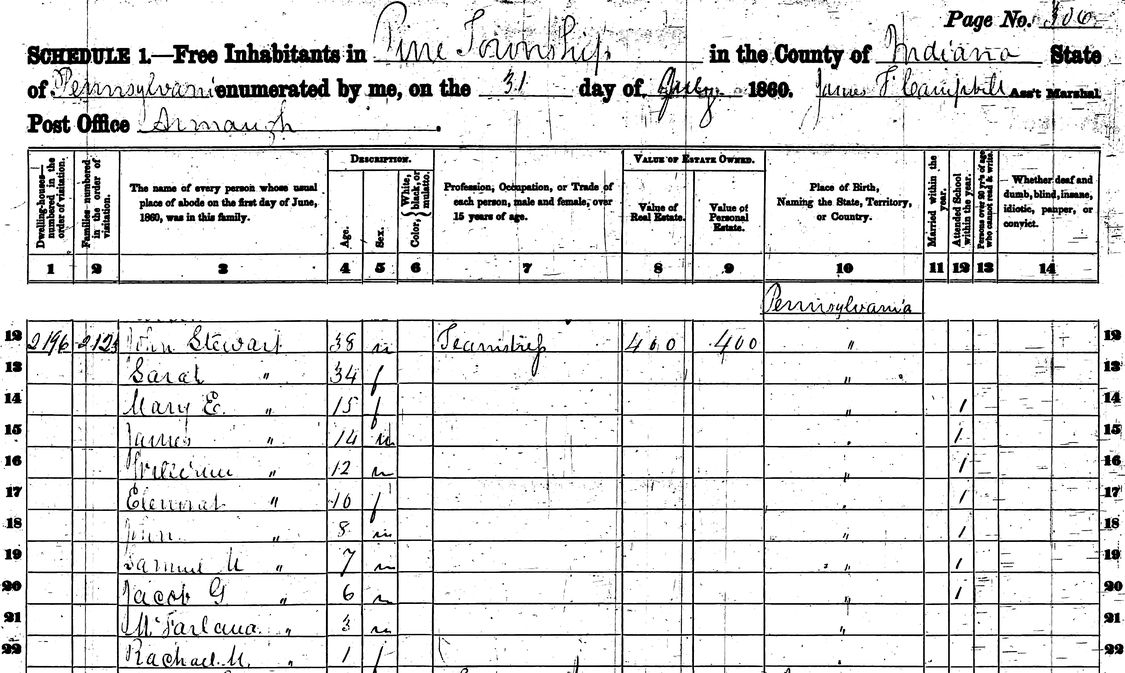 Page No. 306
SCHEDULE 1.—Free Inhabitants in Pine Township in the County of Indiana State
of Pennsylvania enumerated by me, on the 31 day of July 1860. James F Campbell Ass't Marshal
Post Office Armaugh.
Dwelling-houses—numbered in the order of visitation.
Families numbered in the order of visitation.
The name of every person whose usual place of abode on the first day of June, 1860, was in this family.
DESCRIPTION.
Age.
Sex.
Color, { White, black, or mulatto.
Profession, Occupation, or Trade of each person, male and female, over 15 years of age.
VALUE OF ESTATE OWNED.
Value of Real Estate.
Value of Personal Estate.
Place of Birth, Naming the State, Territory, or Country.
Married within the year.
Attended School within the year.
Persons over 20 y'rs of age who cannot read & write.
Whether deaf and dumb, blind, insane, idiotic, pauper, or convict.
1 2 3 4 5 6 7 8 9 10 11 12 13 14
Pennsylvania
12 2196 John Stewart 38 m 400 400 " 12
13 Sarah " 34 f " 13
14 Mary E. " 15 f " / 14
15 James " 14 m " / 15
16 William " 12 m " / 16
17 " 10 f " / 17
18 John " 8 m " / 18
19 Samuel M " 7 m " / 19
20 Jacob G " 6 m " / 20
21 McFarland " 3 m " 21
22 Rachael M. " 1 f " 22